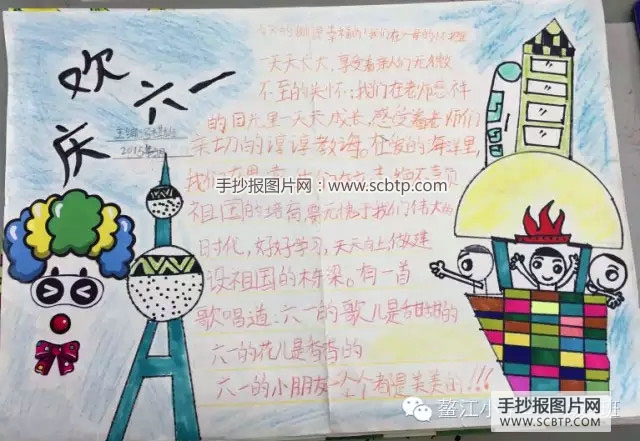 欢庆六一
2015年
一天天长大,享受着亲人们无微
不至的关怀;我们在老师慈祥
的目光里一天天成长,感受着老师们
亲切的谆谆教诲。在爱的海洋里,
我们
手抄报图片网:www.scbtp.com
祖国的培育,要无愧于我们伟大的
时代,好好学习,天天向上做建
设祖国的栋梁。有一首
歌唱道:六一的歌儿是甜甜的
六一的花儿是香香的
六一的小朋友一个个都是美美的!!!
鳌江小
班
手抄报图片网
www.scbtp.com